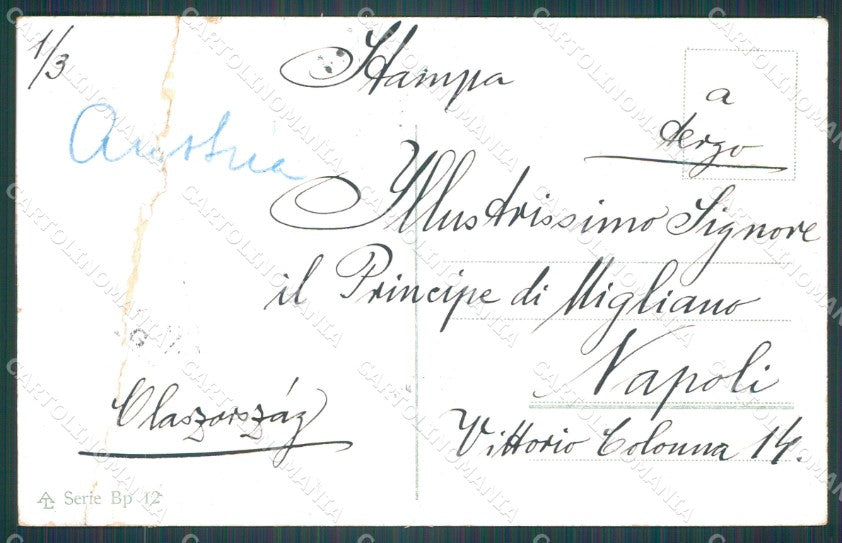 1/3
Stampa
a
tergo
Austria
Illustrissimo Signore
il Principe di Migliano
Napoli
Vittorio Colonna 14.
Olaszország
G
Serie Bp 12
CARTOLINOMANIA